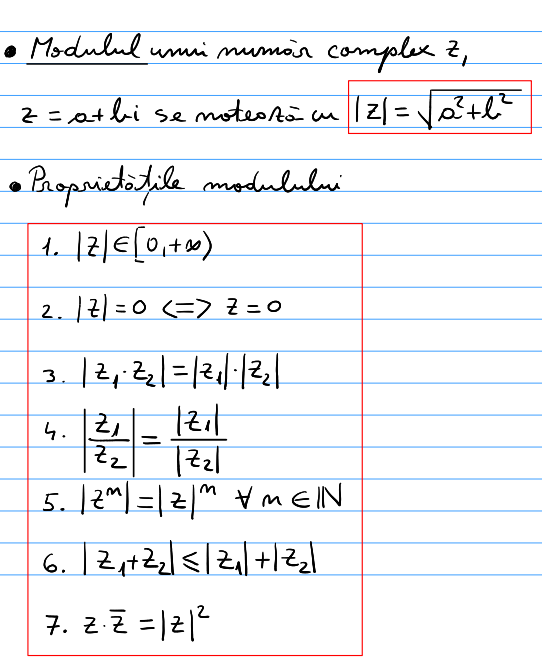 • Modulul unui număr complex z,
z = a+bi se notează cu |z| = √(a²+b²)
• Proprietățile modulului
1. |z| ∈ [0, +∞)
2. |z| = 0 <=> z = 0
3. |z₁·z₂| = |z₁|·|z₂|
4. |z₁/z₂| = |z₁|/|z₂|
5. |zⁿ| = |z|ⁿ ∀ n ∈ ℕ
6. |z₁+z₂| ≤ |z₁|+|z₂|
7. z·z̄ = |z|²